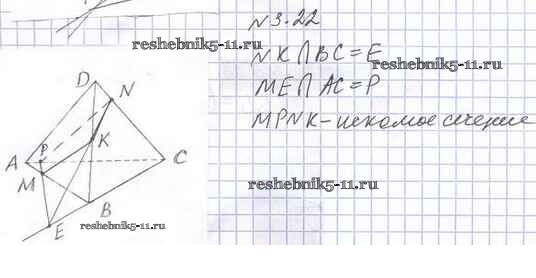 N 3.22
reshebnik5-11.ru
NK ∩ BC = E
ME ∩ AC = P
MPNK - искомое сечение
D
N
K
A
P
C
M
reshebnik5-11.ru
B
E
reshebnik5-11.ru